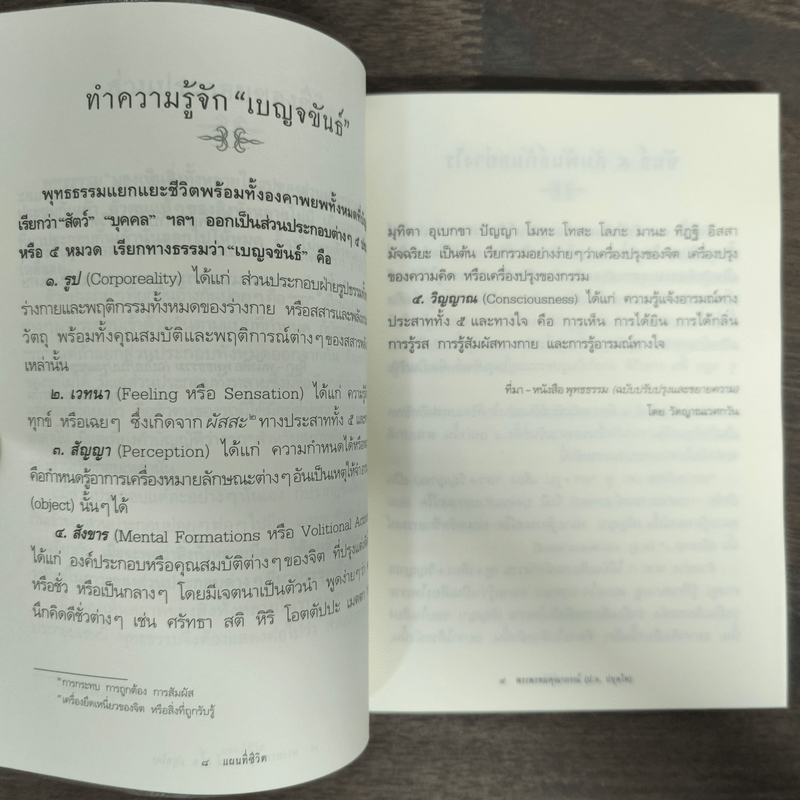 ทำความรู้จัก “เบญจขันธ์”
พุทธธรรมแยกแยะชีวิตพร้อมทั้งองคาพยพทั้งหมดที่
เรียกว่า “สัตว์” “บุคคล” ฯลฯ ออกเป็นส่วนประกอบต่างๆ ๕
หรือ ๕ หมวด เรียกทางธรรมว่า “เบญจขันธ์” คือ
๑. รูป (Corporeality) ได้แก่ ส่วนประกอบฝ่ายรูปธรรม
ร่างกายและพฤติกรรมทั้งหมดของร่างกาย หรือสสารและพลังงาน
วัตถุ พร้อมทั้งคุณสมบัติและพฤติการณ์ต่างๆ ของสสาร
เหล่านั้น
๒. เวทนา (Feeling หรือ Sensation) ได้แก่ ความรู้
ทุกข์ หรือเฉยๆ ซึ่งเกิดจาก ผัสสะ ทางประสาททั้ง ๕
๓. สัญญา (Perception) ได้แก่ ความกำหนดได้
คือกำหนดรู้อาการเครื่องหมายลักษณะต่างๆ อันเป็นเหตุให้
(object) นั้นๆ ได้
๔. สังขาร (Mental Formations หรือ Volitional
ได้แก่ องค์ประกอบหรือคุณสมบัติต่างๆ ของจิต ที่ปรุงแต่ง
หรือชั่ว หรือเป็นกลางๆ โดยมีเจตนาเป็นตัวนำ พูดง่ายๆ ว่า
นึกคิดดีชั่วต่างๆ เช่น ศรัทธา สติ หิริ โอตตัปปะ เมตตา
การกระทบ การถูกต้อง การสัมผัส
เครื่องยึดเหนี่ยวของจิต หรือสิ่งที่ถูกรับรู้
๘ แผนที่ชีวิต
มุทิตา อุเบกขา ปัญญา โมหะ โทสะ โลภะ มานะ ทิฏฐิ อิสสา
มัจฉริยะ เป็นต้น เรียกรวมอย่างง่ายๆ ว่าเครื่องปรุงของจิต เครื่องปรุง
ของความคิด หรือเครื่องปรุงของกรรม
๕. วิญญาณ (Consciousness) ได้แก่ ความรู้แจ้งอารมณ์ทาง
ประสาททั้ง ๕ และทางใจ คือ การเห็น การได้ยิน การได้กลิ่น
การรู้รส การรู้สัมผัสทางกาย และการรู้อารมณ์ทางใจ
ที่มา – หนังสือ พุทธธรรม (ฉบับปรับปรุงและขยายความ)
โดย วัดญาณเวศกวัน
๙ พระพรหมคุณาภรณ์ (ป.อ. ปยุตฺโต)